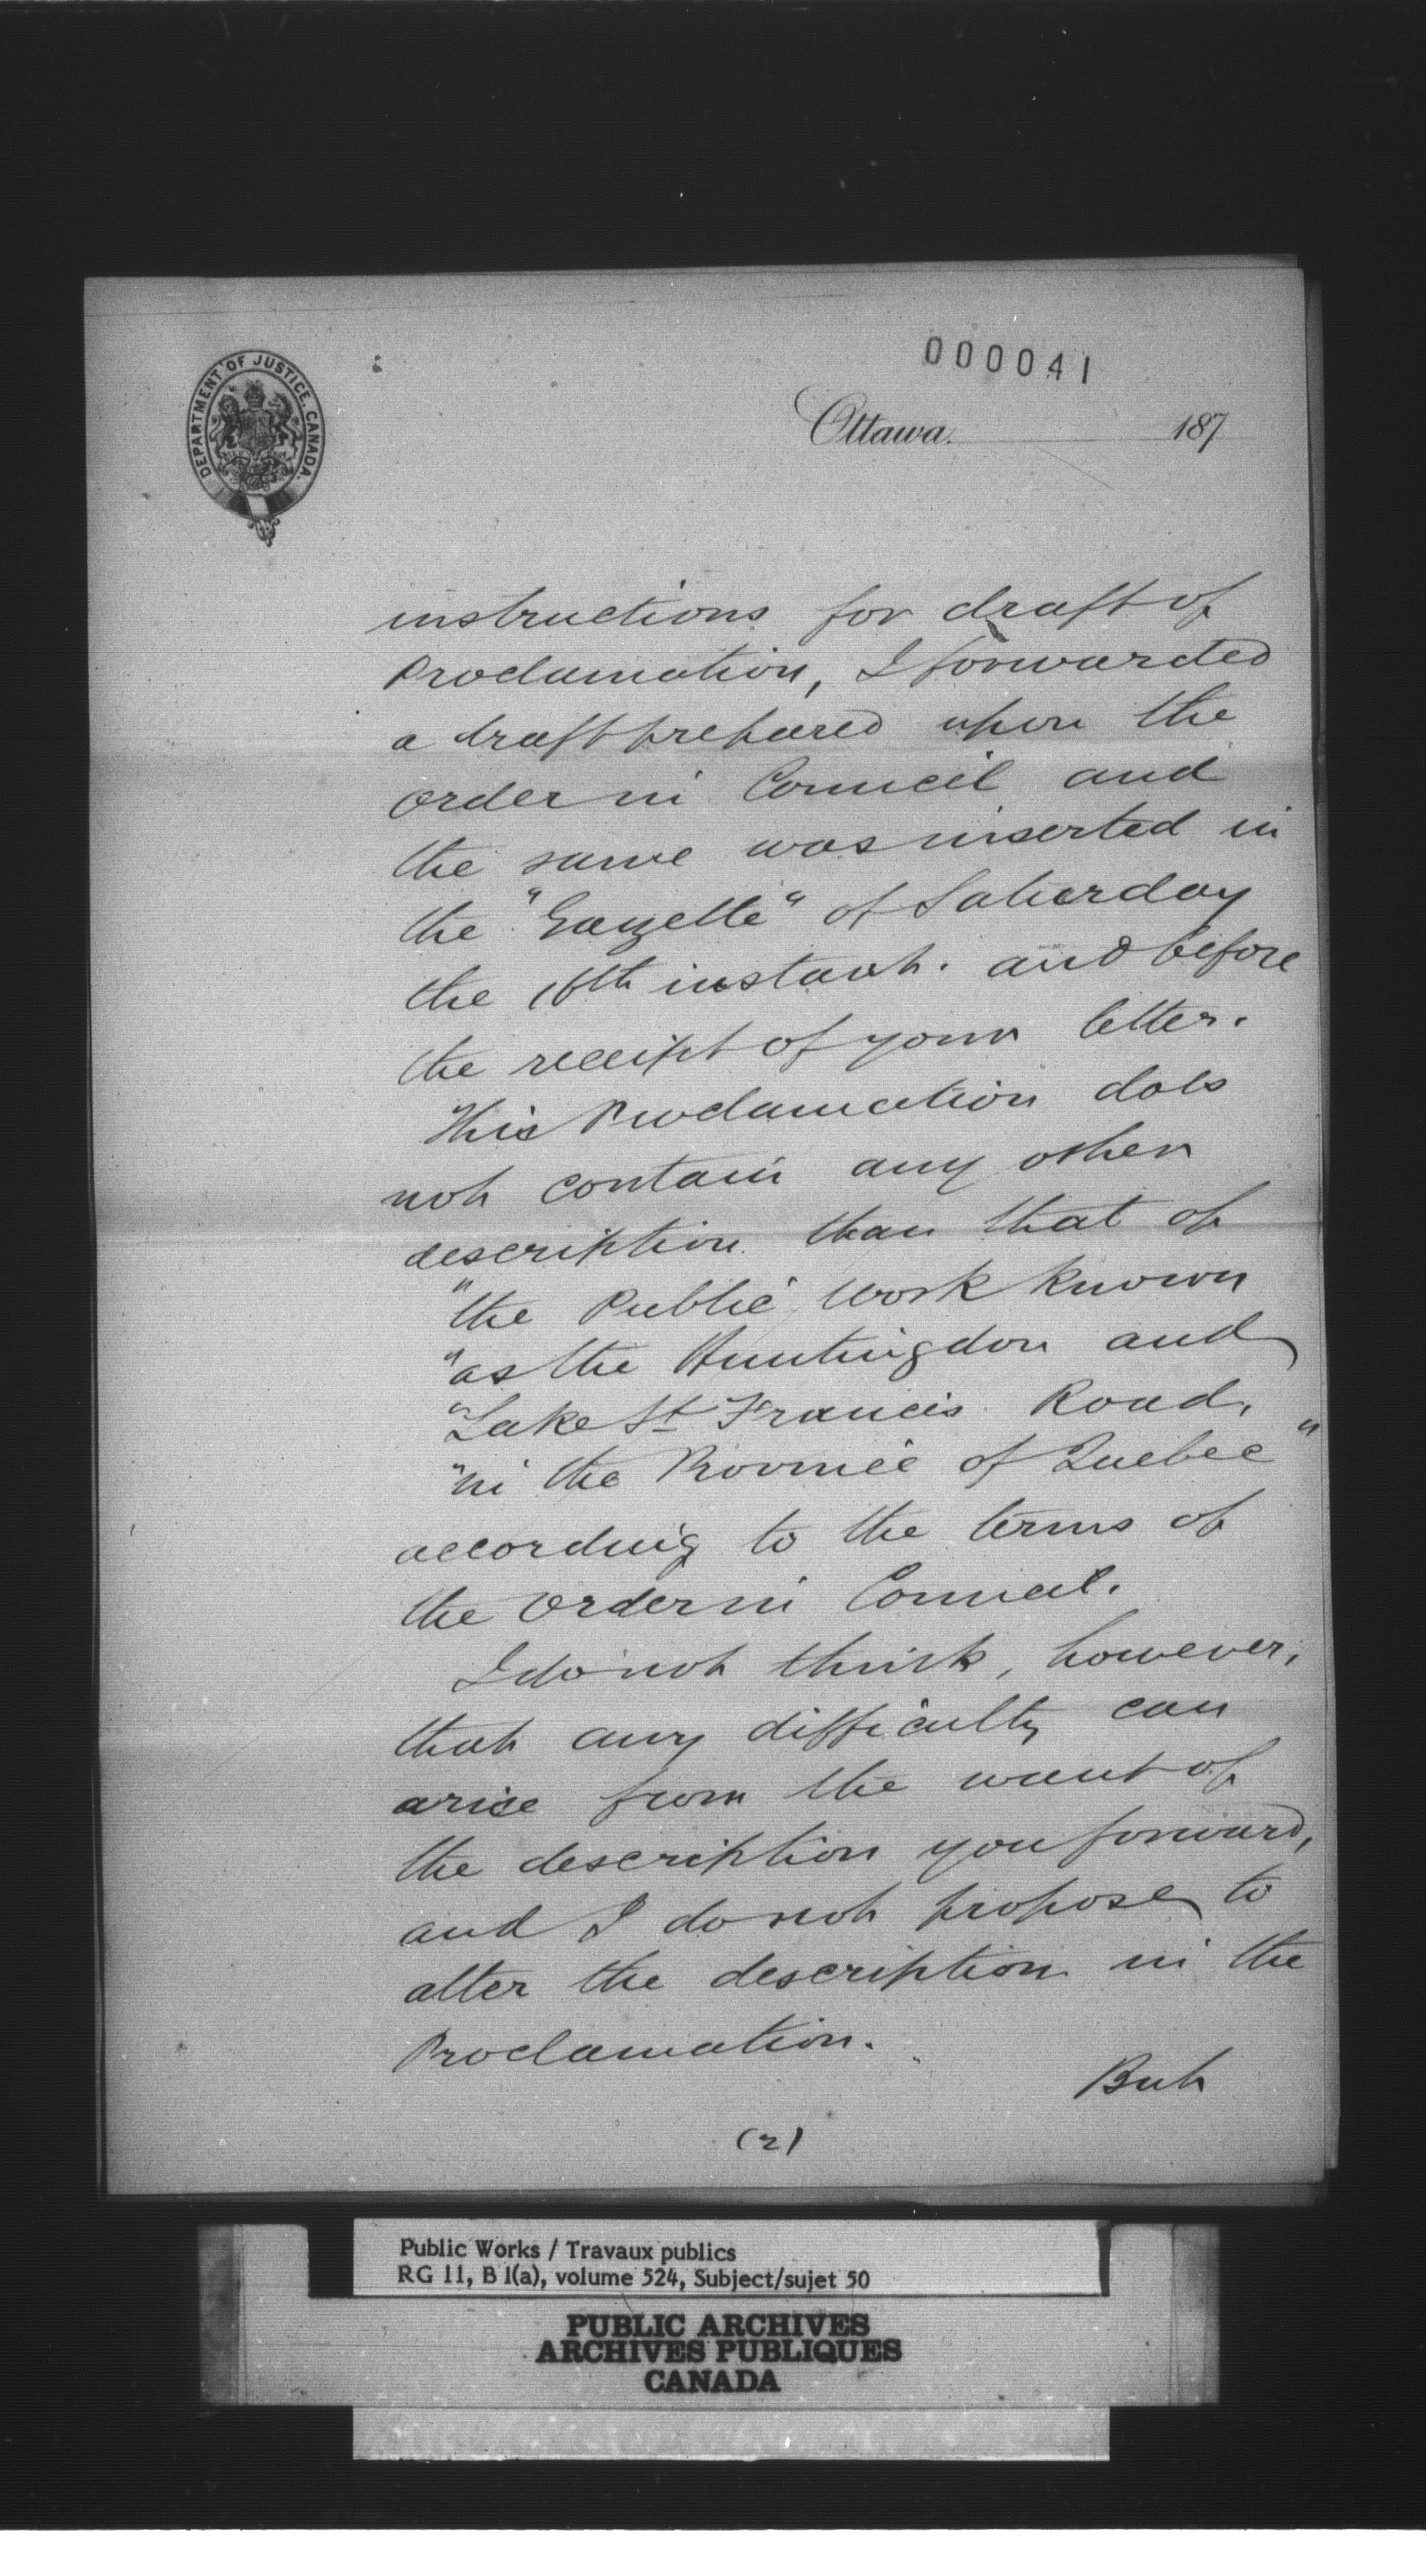 000041
DEPARTMENT OF JUSTICE, CANADA.
Ottawa. 187
instructions for draft of
Proclamation, I forwarded
a draft prepared upon the
Order in Council and
the same was inserted in
the "Gazette" of Saturday
the 16th instant. and before
the receipt of your letter.
This Proclamation does
not contain any other
description than that of
"the Public Work known
"as the Huntingdon and
"Lake St Francis Road,
"in the Province of Quebec"
according to the terms of
the Order in Council.
I do not think, however,
that any difficulty can
arise from the want of
the description you forward,
and I do not propose to
alter the description in the
Proclamation.
But
(2)
Public Works / Travaux publics
RG 11, B 1(a), volume 524, Subject/sujet 50
PUBLIC ARCHIVES
ARCHIVES PUBLIQUES
CANADA